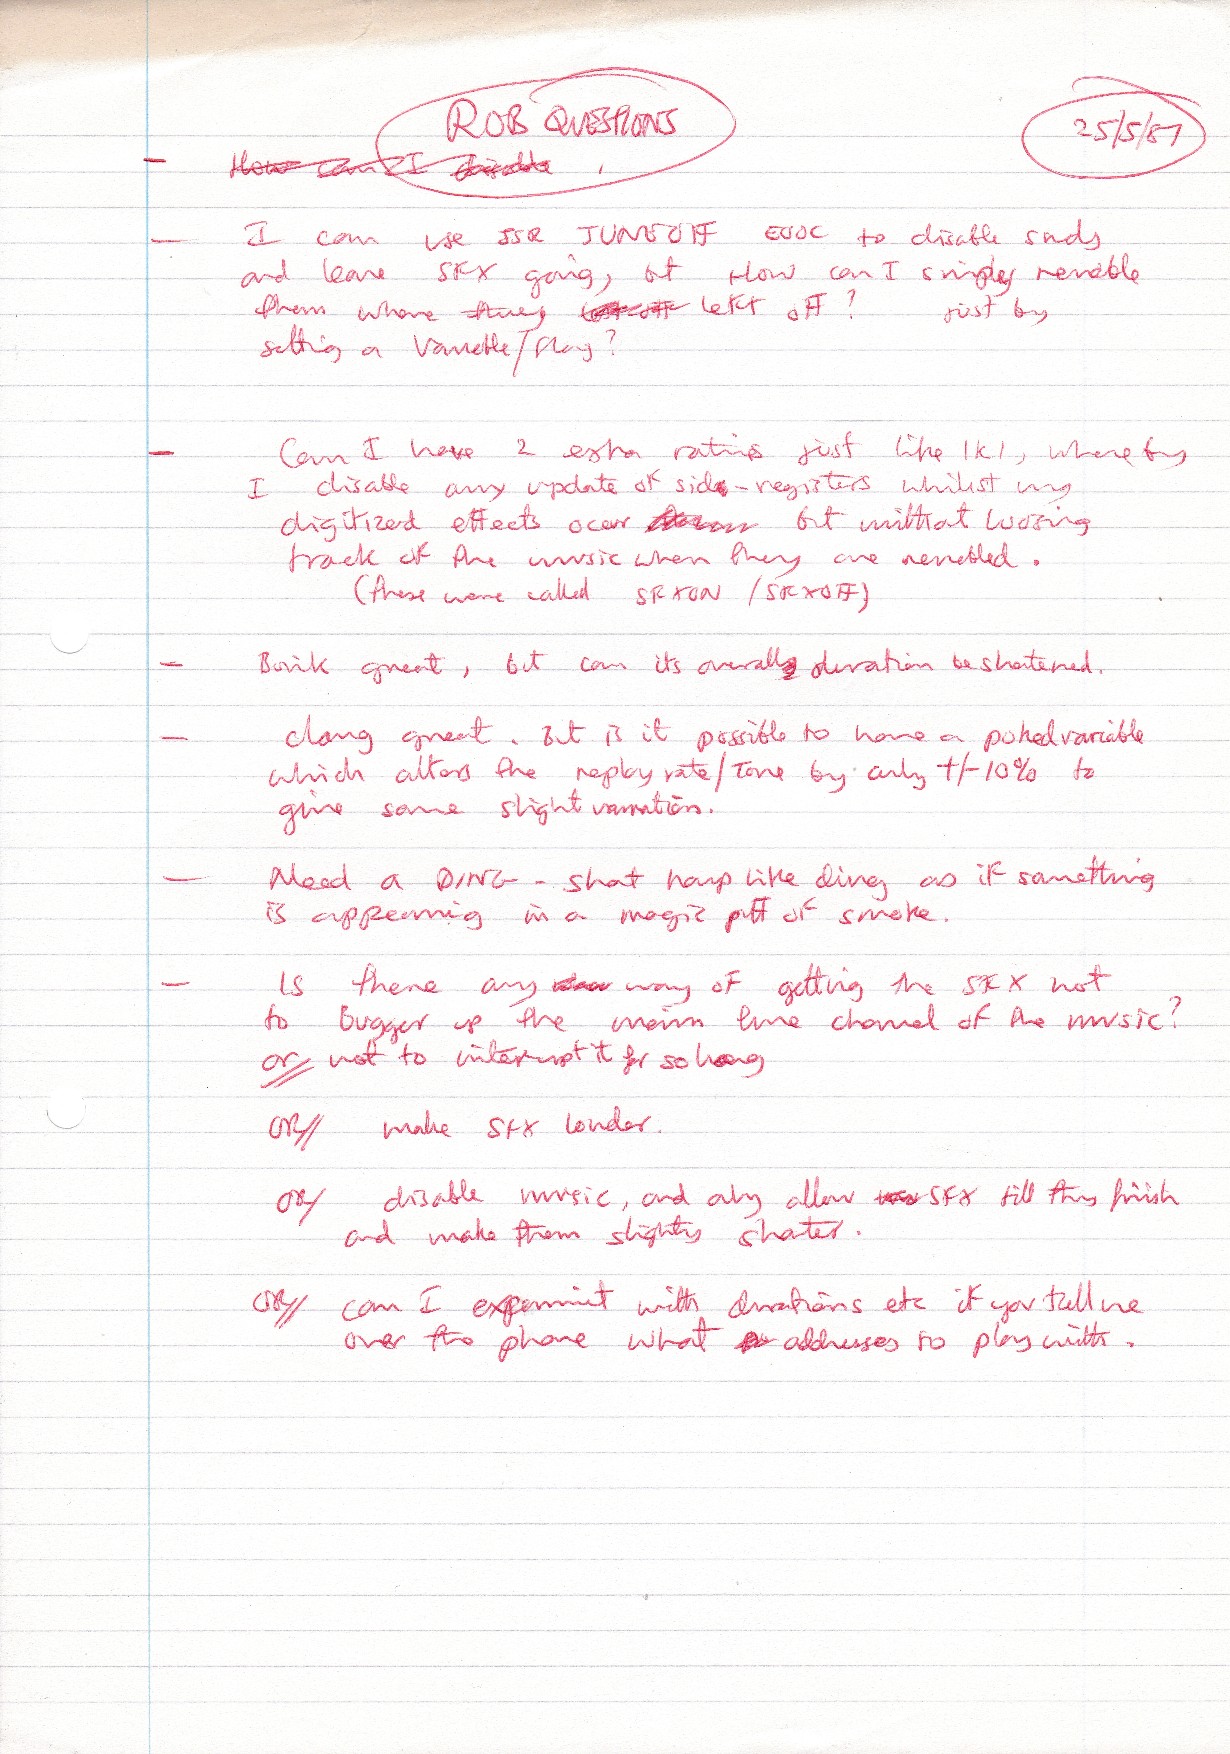 ROB QUESTIONS
25/5/87
- How can I disable
- I can use JSR TUNEOFF E00C to disable snds
and leave SFX going, but How can I simply renable
them where they left off? just by
setting a Variable/flag?
- Can I have 2 extra ratins just like IK1, whereby
I disable any update of side-registers whilst my
digitized effects occur but without loosing
track of the music when they are renebled.
(these were called SFXON / SFXOFF)
- Boink great, but can its overall duration be shortened.
- clang great. But is it possible to have a poked variable
which alters the replay rate/Tone by only +/-10% to
give some slight variation.
- Need a DING - short harp like ding as if something
is appearing in a magic puff of smoke.
- Is there any way of getting the SFX not
to bugger up the main tune channel of the music?
or not to interrupt it for so long
OR// make SFX louder.
OR/ disable music, and only allow SFX till they finish
and make them slightly shorter.
OR// can I experimint with durations etc if you tell me
over the phone what addresses to play with.